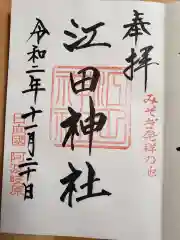 奉拝
みそぎ発祥の地
江田神社
令和二年十月二十日
日向國 阿波岐原